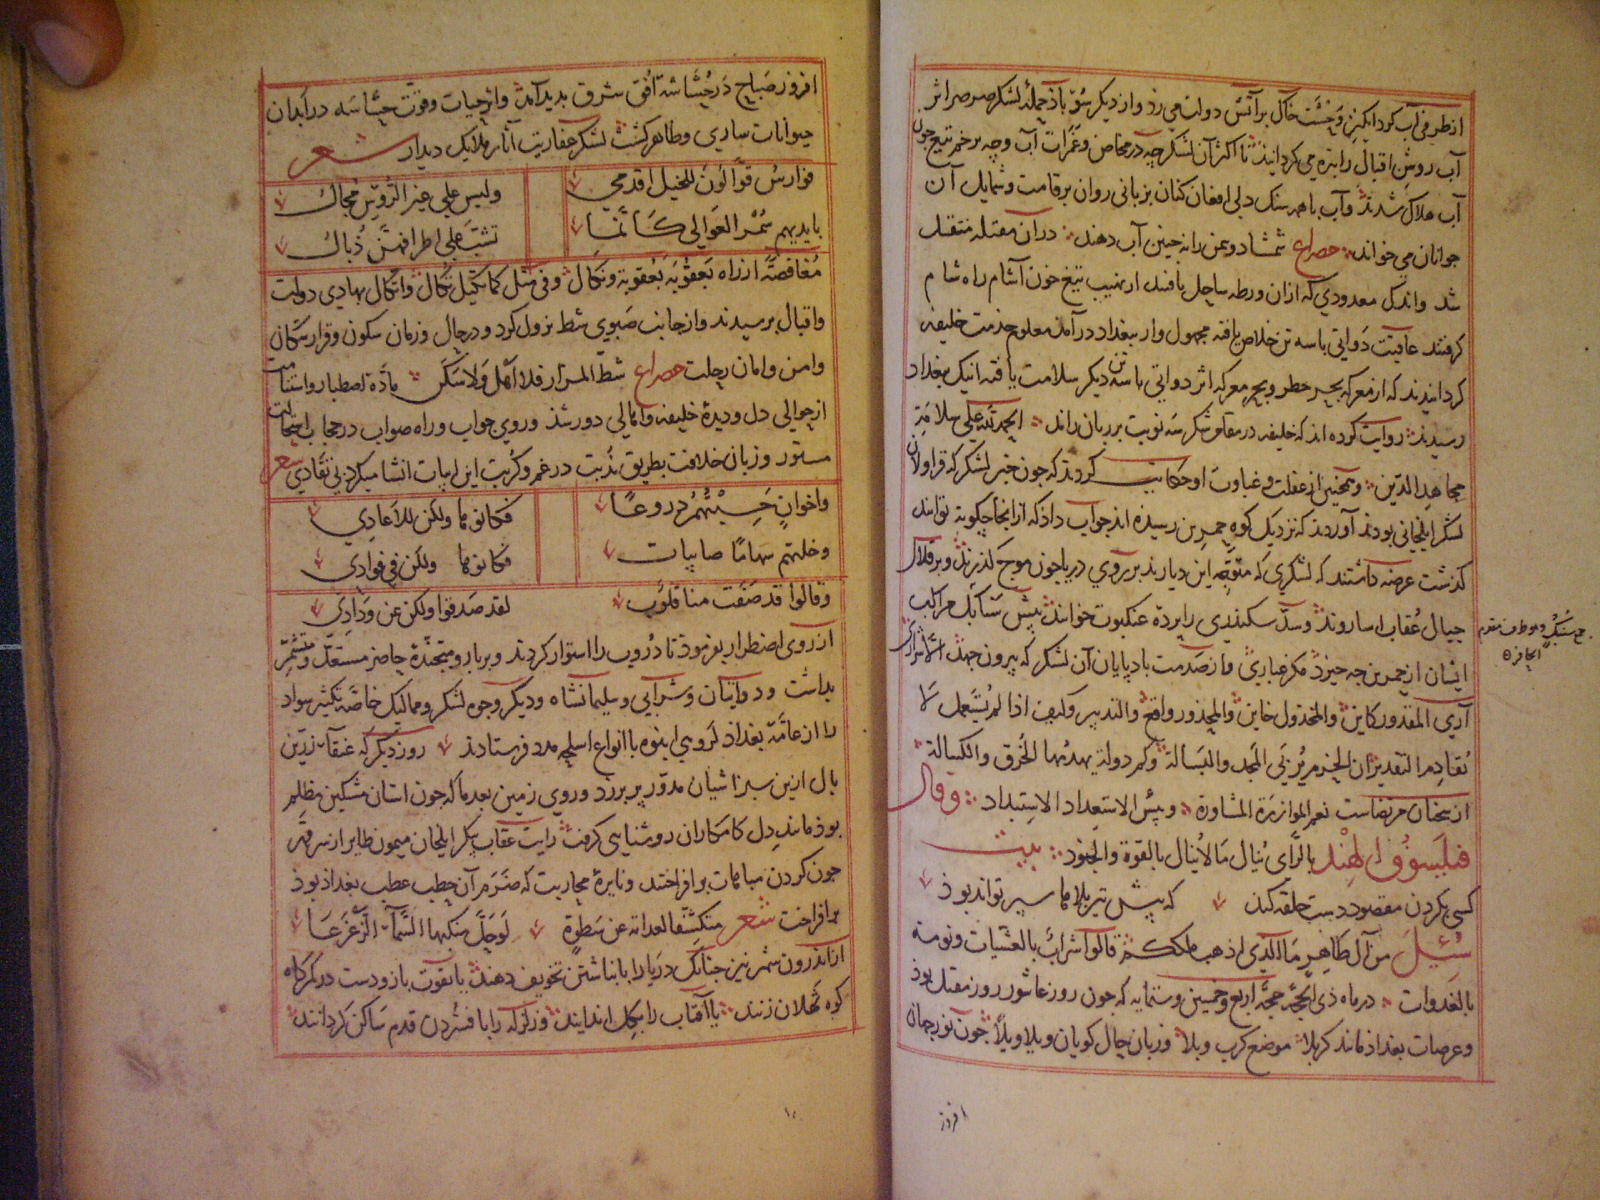 از طرفی آب کرد انگیز و خشت خاک بر آتش دولت می زد و از دیگر سوی باد حمله لشکر صرصر اثر
آب روشن اقبال را تیره می کردانید تا اکثر آن لشکر چه در مخاض و غمرات آب و چه بر خم تیغ چون
آب هلاک شدند و آب با همه سنک دلی افغان کنان بزبانی روان بر قامت و شمایل آن
جوانان می خواند مصراع شمشاد و سمن را نه چنین آب دهند در آن مقتله منتقل
شد و اندک معدودی که از آن ورطه بساحل یافتند از نهیب تیغ خون آشام راه شام
کرفتند عاقبت دواتی با سه تن خلاص یافته مجهول وار ببغداد در آمد معلوم خدمت خلیفه
کردانیدند که از معرکه بحر خطر و بحر معرکه اثر دواتی با سه تن دیکر سلامت یافته اینک ببغداد
رسیدند روایت کرده اند که خلیفه در مقام شکر سه نوبت بر زبان راند الحمد لله علی سلامة
مجاهد الدین و همچنین از غفلت و غباوت او حکایت کردند که چون خبر لشکر که قراولان
لشکر ایلخانی بودند آوردند که نزدیک کوه حمرین رسیده اند جواب داد که از آنجا چکونه توانند
کذشت عرضه داشتند که لشکری که متوجه این دیارند بر روی دریا چون موج کذرند و بر قلاک
جبال عقاب اسا روند و سد سکندری را پرده عنکبوت خوانند پیش سنابک مراکب
ایشان از حمرین چه خیزد مکر غباری و از صدمت باد پایان آن لشکر که بیرون جهد الا شراری
آری المقدور کاین والمخذول خاین والمحذور واقع والتدبیر وکیف اذا لم یستعمل لا
یقادم التقدیر ان الحزم یزین المجد والبسالة وکم دولة یهدمها الخرق والکسالة
از سخنان مرتضاست نعم الموازرة المشاورة وبئس الاستعداد الاستبداد وقال
فیلسوف الهند بالرای ینال ما لا ینال بالقوة والجنود بیت
کسی بکردن مقصود دست حلقه کند که پیش تیر بلاها سپر تواند بود
سئل من آل طاهر ما الذی اذهب ملککم قالوا شراب بالعشیات ونومة
بالغدوات در ماه ذی الحجه حجة اربع وخمسین وستمایه که چون روز عاشور روز مقتل بود
وعرصات بغداد مانند کربلا موضع کرب وبلا وزبان حال کویان ویلا ویلا چون نور جهان
افروز
جمع سنبک و هو طرف مقدم
الحافر
افروز صباح درخشان شد افق شرق بدید آمد و از حیات وقوت حساسه در ابدان
حیوانات ساری وظاهر کشت لشکر عفاریت آثار ملایک دیدار شعر
فوارس قوالون للخیل اقدمی ولیس علی غیر الرؤس مجال
بایدیهم سمر العوالی کانما تشب علی اطرافهن ذبال
مغافصة از راه بعقوبه بعقوبة ونکال وفی مثل کما تکیل تکال واتکال بهادی دولت
واقبال برسیدند و از جانب صوبی شط نزول کرد و در حال و زمان سکون وقرار سکان
وامن وامان رحلت مصراع شط المزار فلا اهل ولا سکن ماده اصطبار واستنامت
از حوالی دل ودیده خلیفه واهالی دور شد وروی جواب وراه صواب در حجاب استحالت
مستور وزبان خلافت بطریق ندبت در غم وکربت این ابیات انشا میکرد بی نقادی شعر
واخوان حسبتهم دروعا فکانوها ولکن للاعادی
وخلتهم سهاما صایبات فکانوها ولکن فی فوادی
وقالوا قد صفت منا قلوب لقد صدقوا ولکن عن ودادی
از روی اضطرار بفرمود تا دروب را استوار کردند
بداشت و دواتیان وشرابی وسلیمانشاه ودیکر وجوه لشکر وممالیک خاصه تکثیر سواد
را از عامه بغداد کروهی انبوه با انواع اسلحه مدد فرستادند روز دیکر که عنقاء زرین
بال ازین سبز اشیان مدور بر پرزد وروی زمین بعد ما که چون استان مشکین مظلم
بود مانند دل کامکاران روشنایی کرفت رایت عقاب پیکر ایلخان میمون طایر از سر قهر
چون کردن مباهات بر افراختند ونایره محاربت که متضرم آن حطب عطب بغداد بود
بر افراخت شعر متکشفا لعداته عن سطوة لو حل منکبها السماء لزعزعا
از اندرون شهر نیز چنانک دریا را بانباشتن تخویف دهند یا بقوت بازو دست در کمرکاه
کوه ثهلان زنند یا آفتاب را بکل اندایند وزلزله را با فشردن قدم ساکن کردانند
١٠